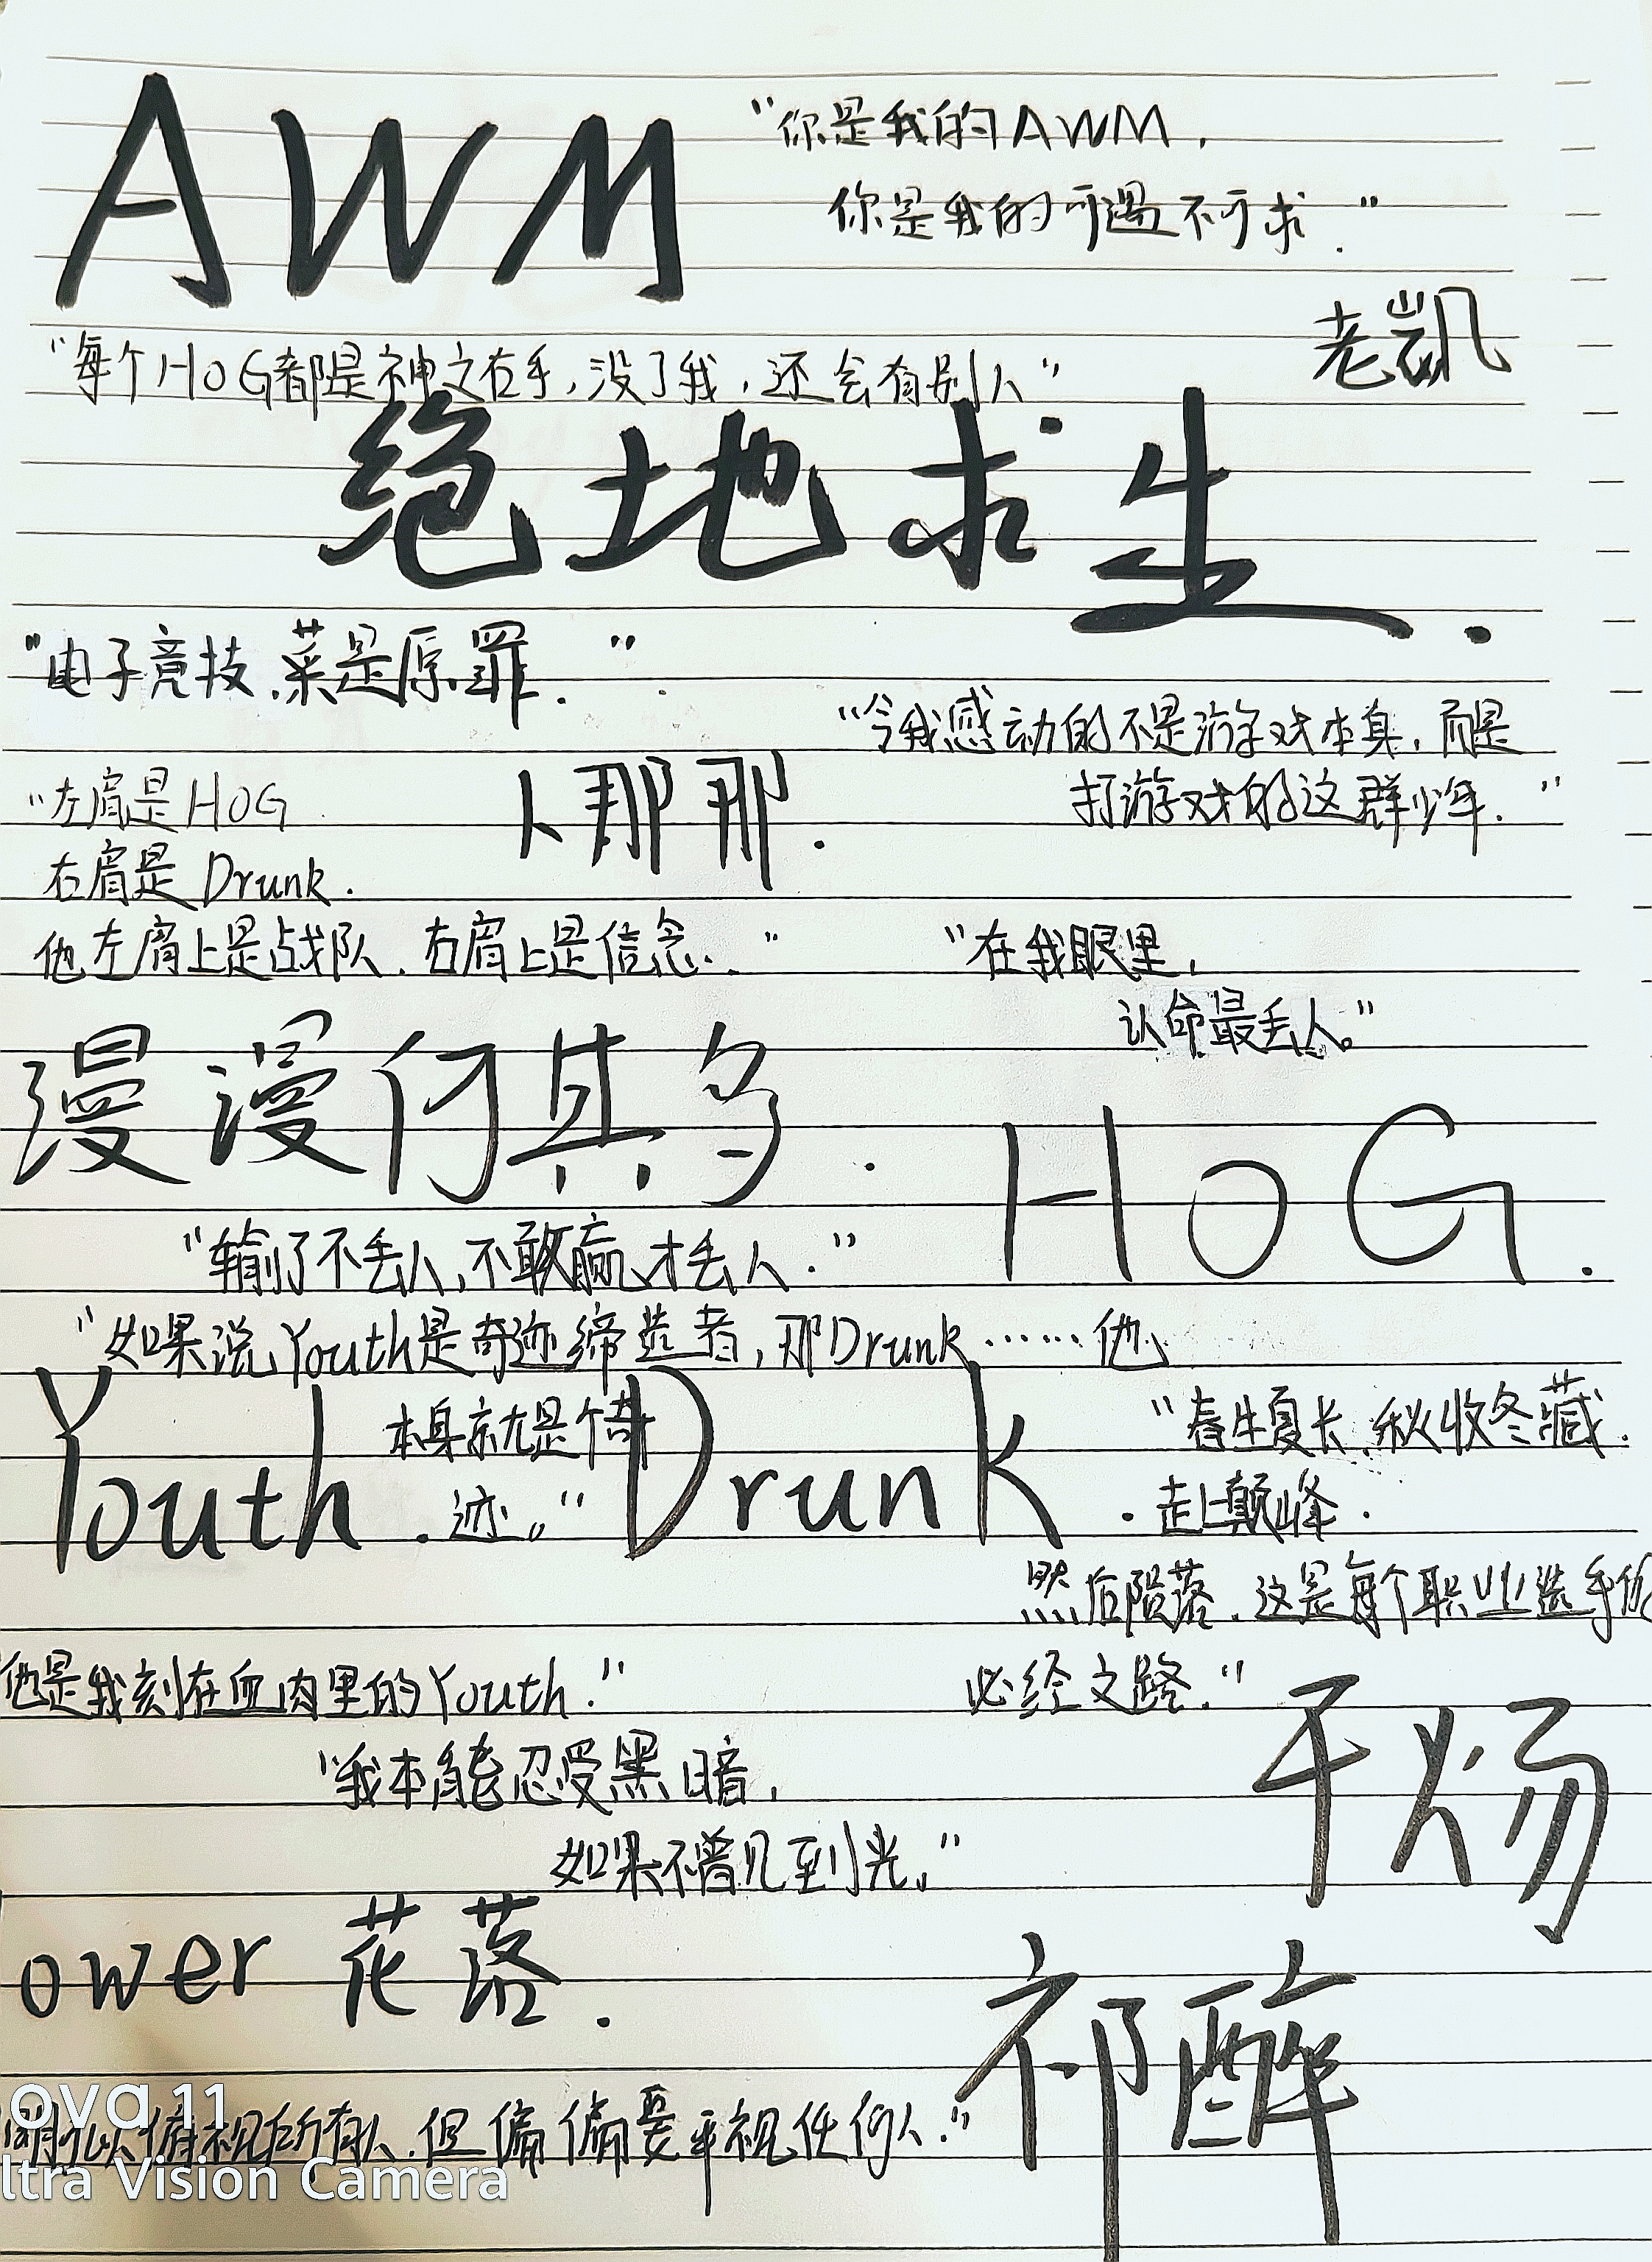 AWM
"你是我的AWM,
你是我的可遇不可求."
老凯
"每个HOG都是神之右手,没了我,还会有别人"
绝地求生.
"电子竞技,菜是原罪."
"令我感动的不是游戏本身,而是
打游戏的这群少年."
"左肩是HOG
卜那那.
右肩是Drunk.
他左肩上是战队.右肩上是信念."
"在我眼里,
认命最丢人。"
漫漫何其多.
HOG.
"输了不丢人,不敢赢才丢人."
"如果说Youth是奇迹缔造者,那Drunk……他
本身就是个奇
迹。"
Youth.
Drunk.
"春生夏长,秋收冬藏.
走上巅峰.
然后陨落.这是每个职业选手的
必经之路."
他是我刻在血肉里的Youth."
于炀
"我本能忍受黑暗,
如果不曾见到光."
ower 花落.
祁醉
ova 11
可以俯视所有人.但偏偏要平视任何人."
ltra Vision Camera